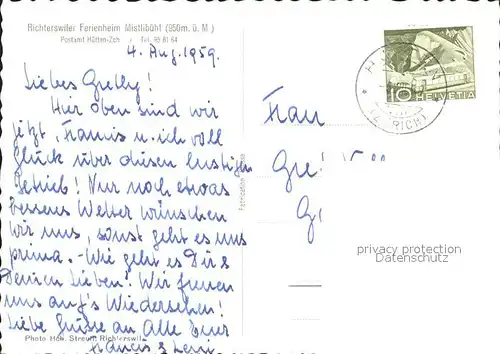 Richterswiler Ferienheim Mistlibühl (950m. ü. M.)
Postamt Hütten-Zch Tel. 95 81 64
4. Aug. 1959.
Liebes Gretly!
Hier oben sind wir
jetzt, Francis u. ich voll
Glück über diesen lustigen
Betrieb! Nur noch etwas
besseres Wetter wünschen
wir uns, sonst geht es uns
prima. - Wie geht es Dir &
Deinen Lieben? Wir freuen
uns auf's Wiedersehen!
Liebe Grüsse an Alle Eure
Francis &
Photo Hch. Streuli Richterswil
10 HELVETIA
(ZÜRICH)
Frau
Gre
G
privacy protection
Datenschutz